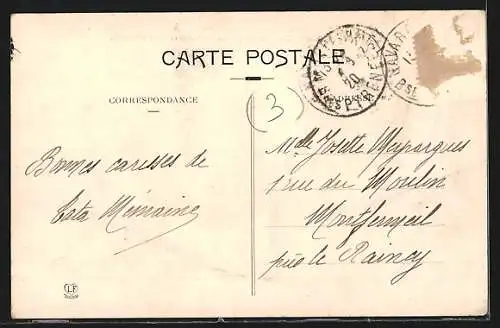 CARTE POSTALE
CORRESPONDANCE
ADRESSE
(3)
Bonnes caresses de
tata Mémaine
Mlle Josette Maparques
1 rue du Moulin
Montfermeil
près le Raincy
NAVAR
BSES PYRENEES
LF